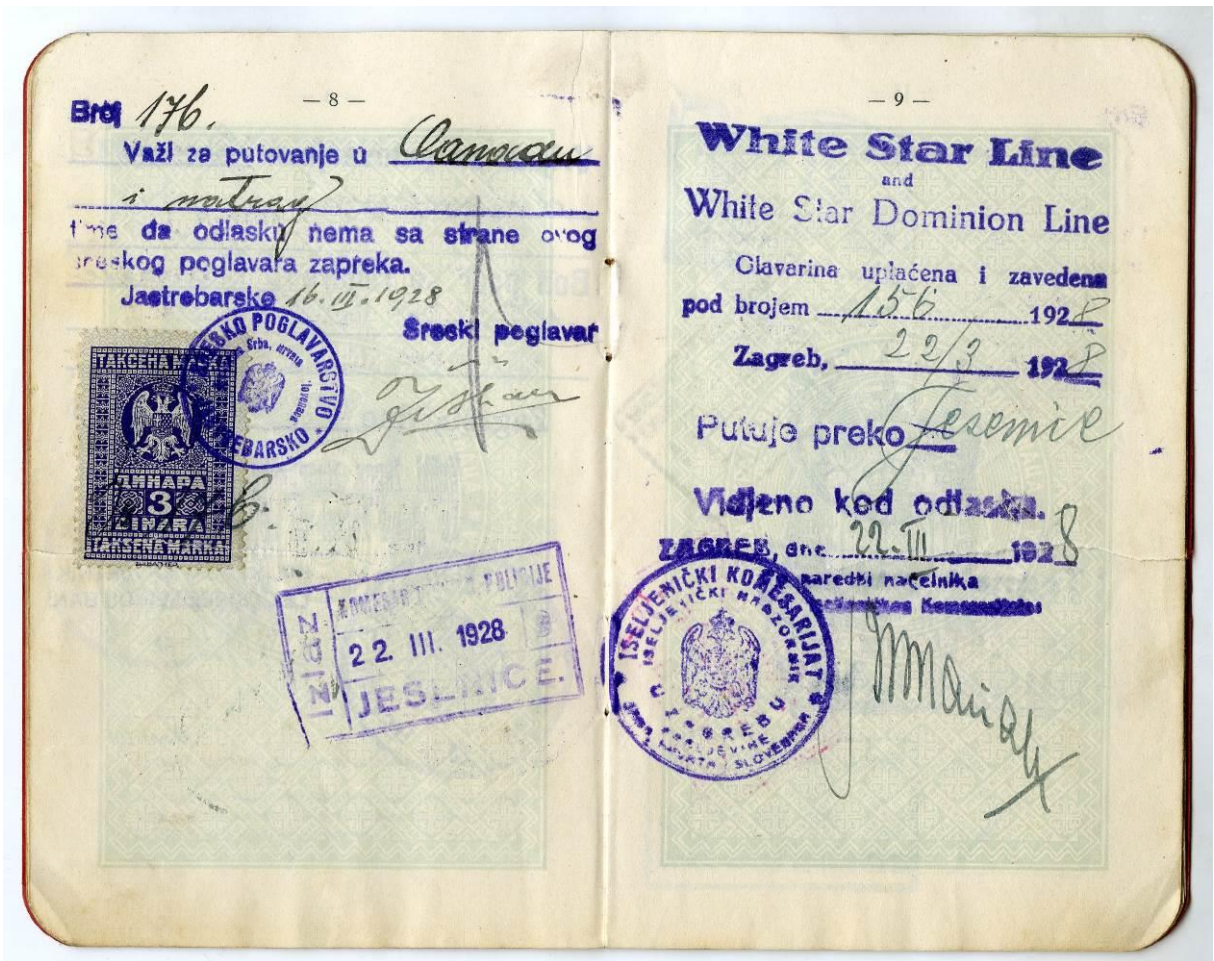 — 8 —
Broj 176.
Važi za putovanje u Canadu
i natrag
time da odlasku nema sa strane ovog
sreskog poglavara zapreka.
Jastrebarsko 16. III. 1928
Sreski poglavar
SRESKO POGLAVARSTVO
JASTREBARSKO
ТАКСЕНА МАРКА
ДИНАРА
3
DINARA
TAKSENA MARKA
KOMESAR POLICIJE
IZLAZNI
22 III. 1928
JESENICE.
— 9 —
White Star Line
and
White Star Dominion Line
Glavarina uplaćena i zavedena
pod brojem 156 1928
Zagreb, 22/3 1928
Putuje preko Jesenice
Vidjeno kod odlaska.
ZAGREB, dne 22-III 1928
naredbi načelnika
ISELJENIČKI KOMESARIJAT
U ZAGREBU